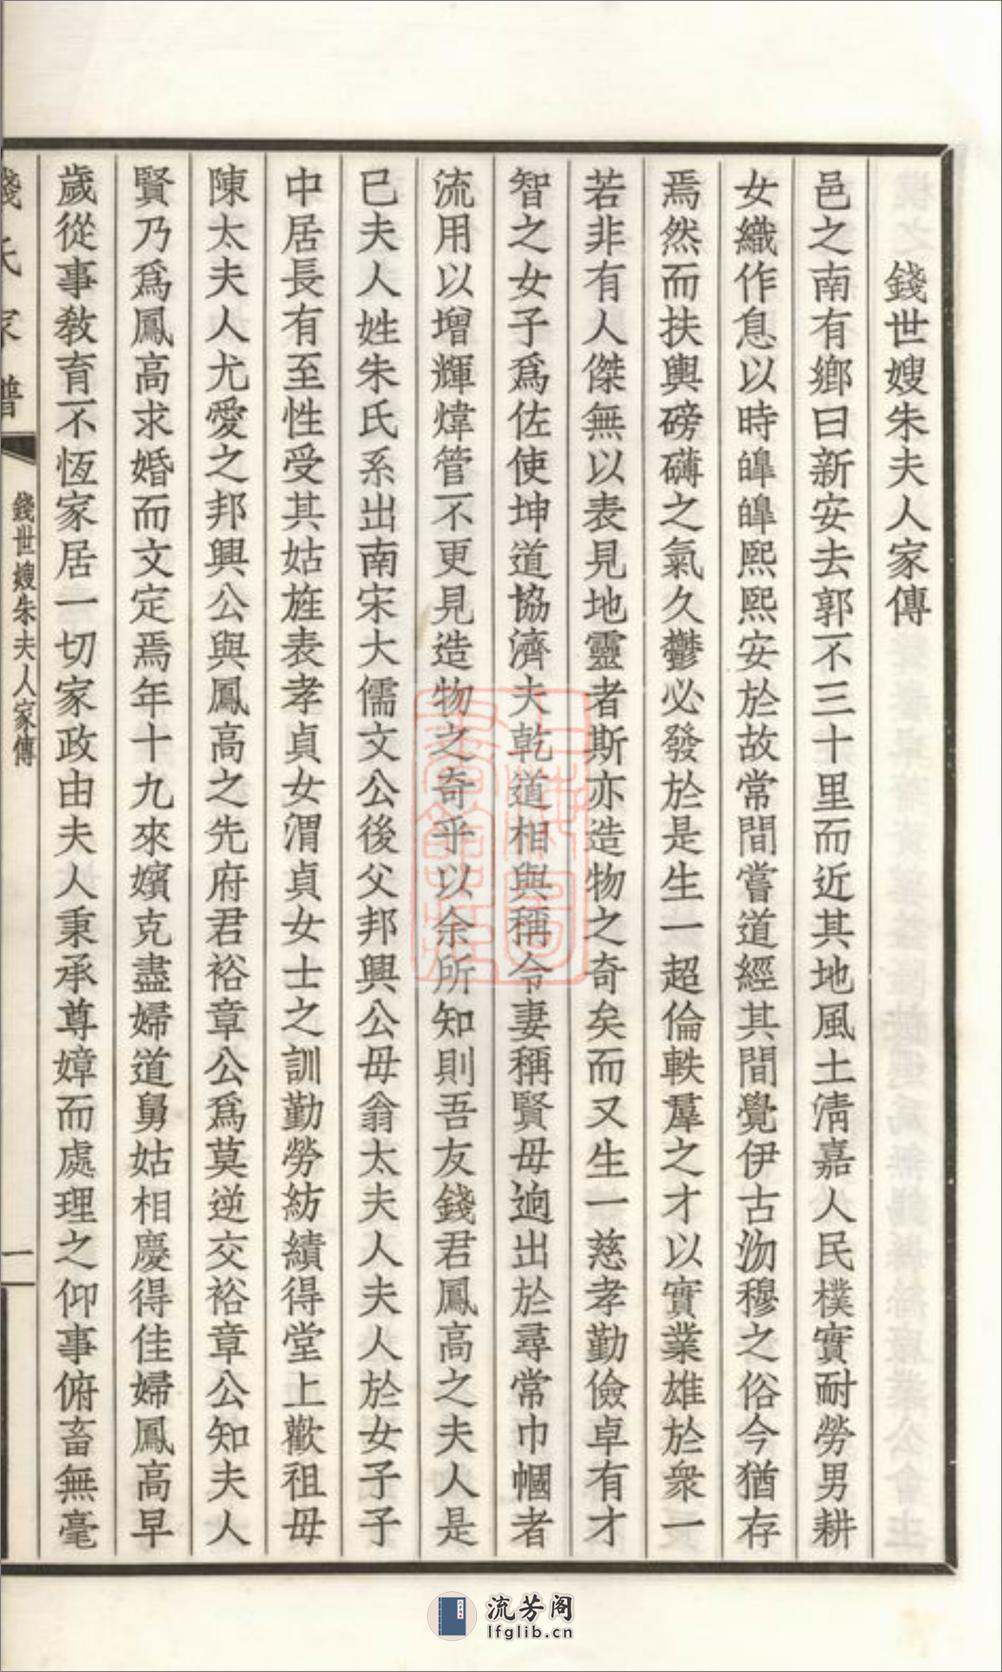 錢世嫂朱夫人家傳
邑之南有鄉曰新安去郭不三十里而近其地風土淸嘉人民樸實耐勞男耕
女織作息以時皥皥熙熙安於故常間嘗道經其間覺伊古沕穆之俗今猶存
焉然而扶輿磅礴之氣久鬱必發於是生一超倫軼羣之才以實業雄於衆一
若非有人傑無以表見地靈者斯亦造物之奇矣而又生一慈孝勤儉卓有才
智之女子爲佐使坤道協濟夫乾道相與稱令妻稱賢母逈出於尋常巾幗者
流用以增輝煒管不更見造物之奇乎以余所知則吾友錢君鳳高之夫人是
已夫人姓朱氏系出南宋大儒文公後父邦興公母翁太夫人夫人於女子子
中居長有至性受其姑旌表孝貞女渭貞女士之訓勤勞紡績得堂上歡祖母
陳太夫人尤愛之邦興公與鳳高之先府君裕章公爲莫逆交裕章公知夫人
賢乃爲鳳高求婚而文定焉年十九來嬪克盡婦道舅姑相慶得佳婦鳳高早
歲從事敎育不恆家居一切家政由夫人秉承尊嫜而處理之仰事俯畜無毫
錢氏家譜
錢世嫂朱夫人家傳
一
上海圖
書館藏
流芳阁
lfglib.cn